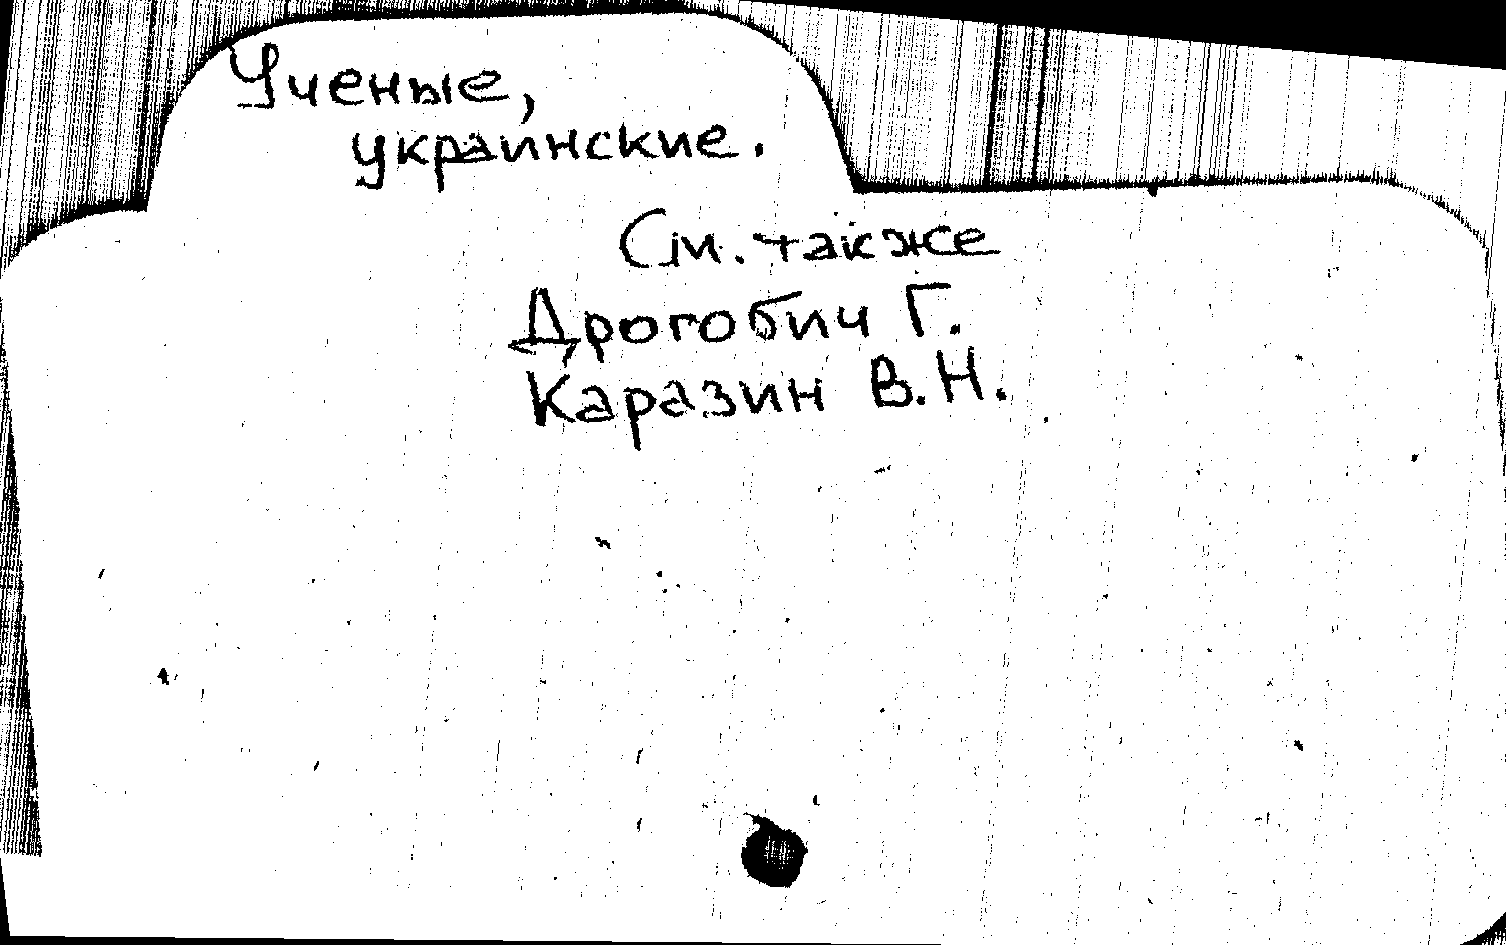 Ученые,
украинские.
См. также
Дрогобич Г.
Каразин В.Н.